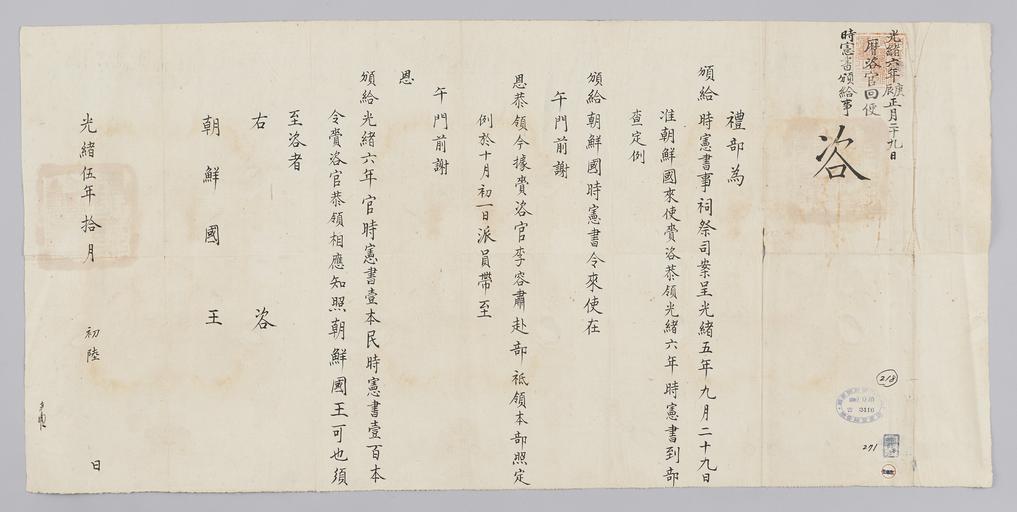 光緒六年庚辰正月二十九日
曆咨官回便
時憲書頒給事
咨
禮部為
頒給時憲書事祠祭司案呈光緒五年九月二十九日
准朝鮮國來使賫咨恭領光緒六年時憲書到部
查定例
頒給朝鮮國時憲書令來使在
午門前謝
恩恭領今據賫咨官李容肅赴部祗領本部照定
例於十月初一日派員帶至
午門前謝
恩
頒給光緒六年官時憲書壹本民時憲書壹百本
令賫咨官恭領相應知照朝鮮國王可也須
至咨者
右咨
朝鮮國王
光緒伍年拾月初陸日
218
271